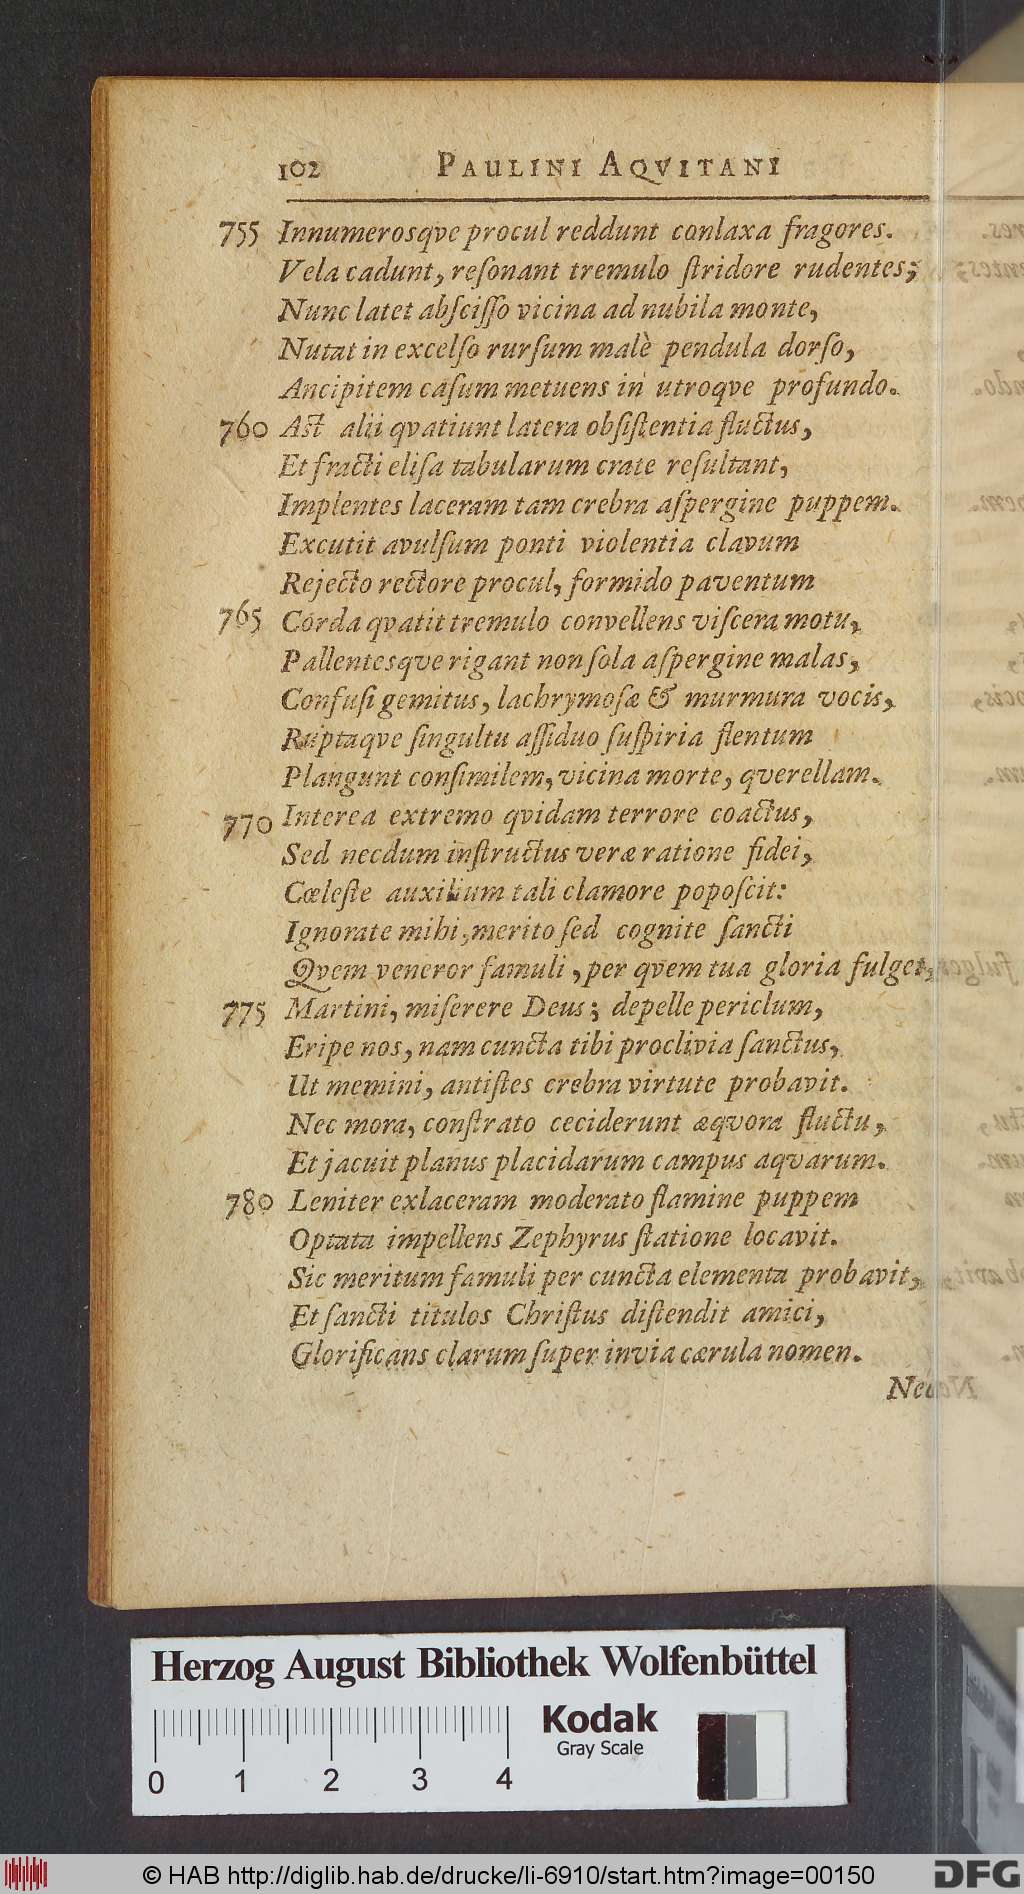 102 PAULINI AQVITANI
755 Innumerosqve procul reddunt conlaxa fragores.
Vela cadunt, reſonant tremulo ſtridore rudentes;
Nunc latet abſciſſo vicina ad nubila monte,
Nutat in excelſo rurſum malè pendula dorſo,
Ancipitem caſum metuens in utroqve profundo.
760 Aſt alii qvatiunt latera obſiſtentia fluctus,
Et fracti eliſa tabularum crate reſultant,
Implentes laceram tam crebra aſpergine puppem.
Excutit avulſum ponti violentia clavum
Rejecto rectore procul, formido paventum
765 Corda qvatit tremulo convellens viſcera motu,
Pallentesqve rigant non ſola aſpergine malas,
Confuſi gemitus, lachrymoſæ & murmura vocis,
Ruptaqve ſingultu aſſiduo ſuſpiria flentum
Plangunt conſimilem, vicina morte, qverellam.
770 Interea extremo qvidam terrore coactus,
Sed necdum inſtructus veræ ratione fidei,
Cœleſte auxilium tali clamore popoſcit:
Ignorate mihi, merito ſed cognite ſancti
Qvem veneror famuli, per qvem tua gloria fulget,
775 Martini, miſerere Deus; depelle periclum,
Eripe nos, nam cuncta tibi proclivia ſanctus,
Ut memini, antiſtes crebra virtute probavit.
Nec mora, conſtrato ceciderunt æqvora fluctu,
Et jacuit planus placidarum campus aqvarum.
780 Leniter exlaceram moderato flamine puppem
Optata impellens Zephyrus ſtatione locavit.
Sic meritum famuli per cuncta elementa probavit,
Et ſancti titulos Chriſtus diſtendit amici,
Glorificans clarum ſuper invia cærula nomen.
Herzog August Bibliothek Wolfenbüttel
0 1 2 3 4
Kodak
Gray Scale
© HAB http://diglib.hab.de/drucke/li-6910/start.htm?image=00150
DFG